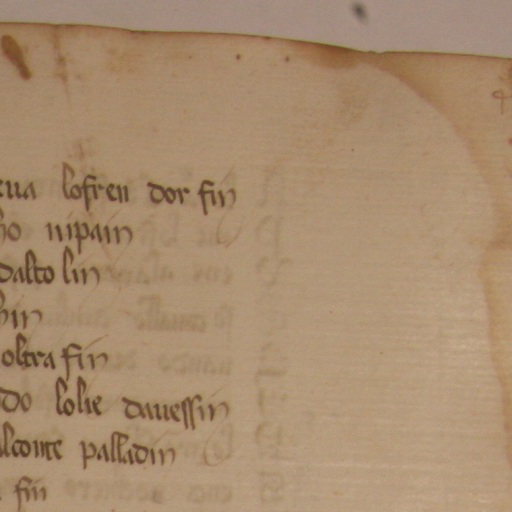 eua lofren dor fin
ho nipain
dalto lin
hin
oltra fin
do lolie dauessin
alconte palladin
fin